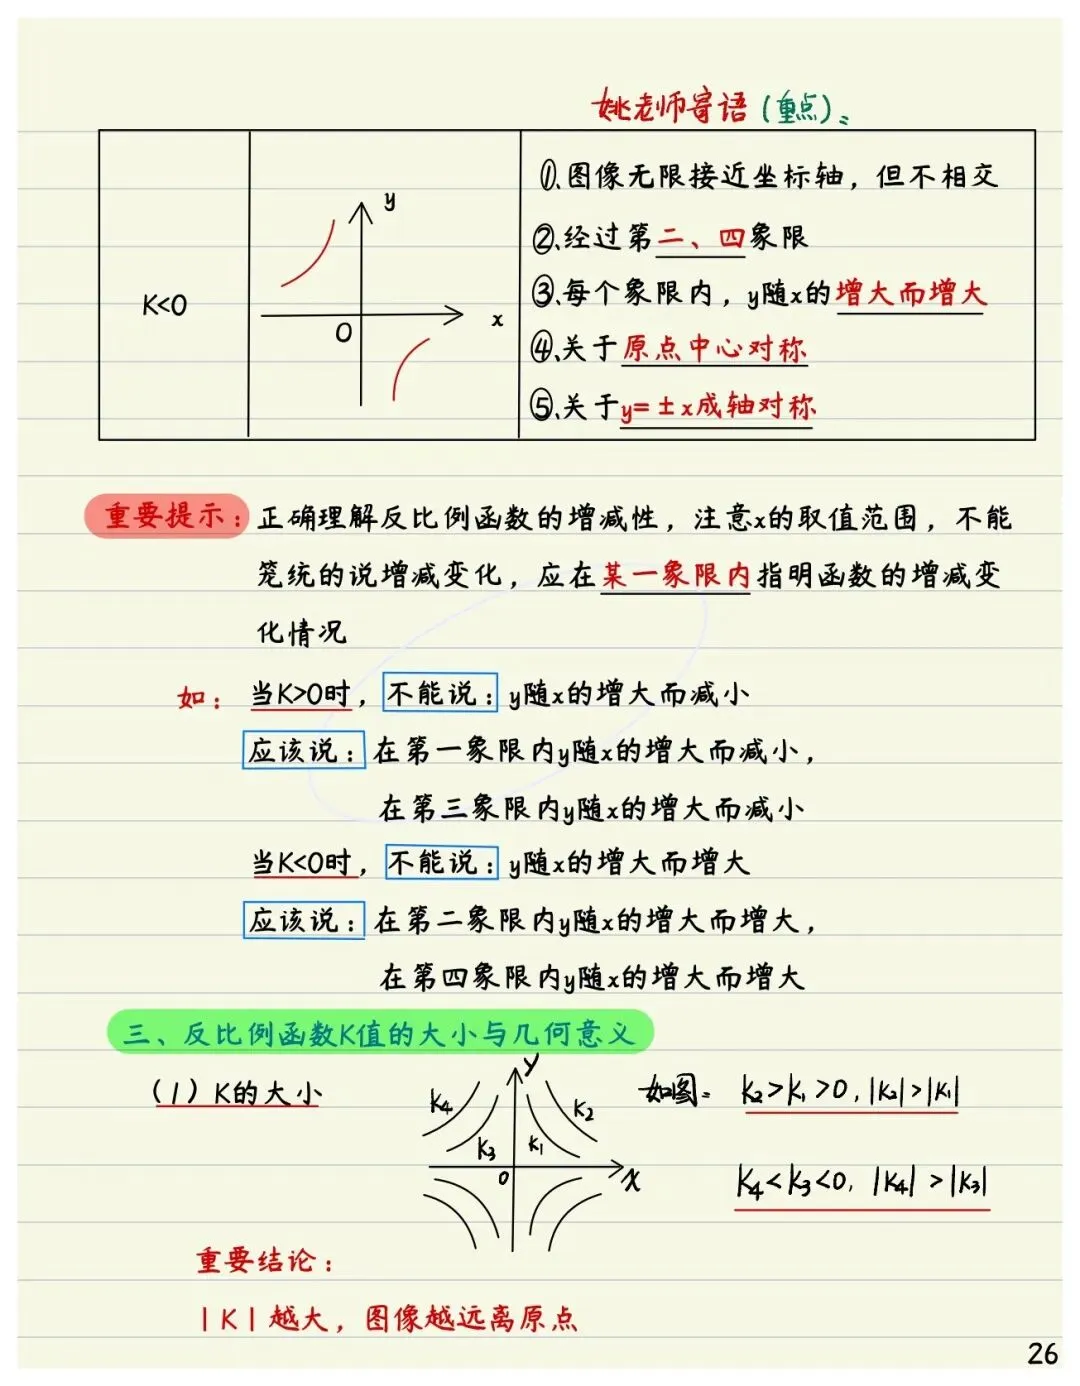 姚老师寄语(重点):
K<0
y
x
O
①、图像无限接近坐标轴，但不相交
②、经过第二、四象限
③、每个象限内，y随x的增大而增大
④、关于原点中心对称
⑤、关于y=±x成轴对称
重要提示：正确理解反比例函数的增减性，注意x的取值范围，不能
笼统的说增减变化，应在某一象限内指明函数的增减变
化情况
如：当K>0时，不能说：y随x的增大而减小
应该说：在第一象限内y随x的增大而减小，
在第三象限内y随x的增大而减小
当K<0时，不能说：y随x的增大而增大
应该说：在第二象限内y随x的增大而增大，
在第四象限内y随x的增大而增大
三、反比例函数K值的大小与几何意义
（1）K的大小
y
K4
K2
K3
K1
O
x
如图： K2>K1>0,|K2|>|K1|
K4<K3<0,|K4|>|K3|
重要结论：
|K|越大，图像越远离原点
26